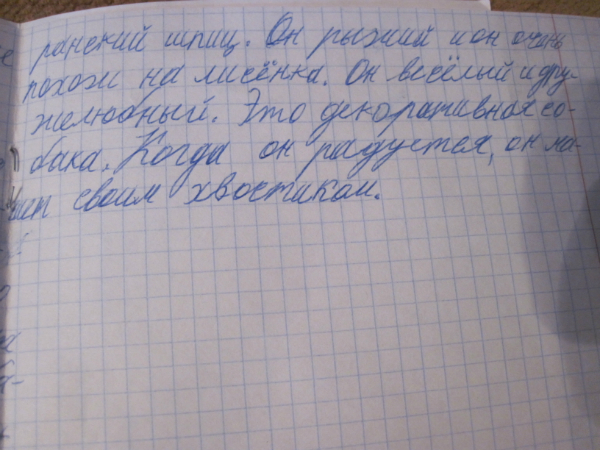 ранский шпиц. Он рыжий и он очень
похож на лисёнка. Он весёлый и дру-
желюбный. Это декоративная со-
бака. Когда он радуется, он ма-
шет своим хвостиком.